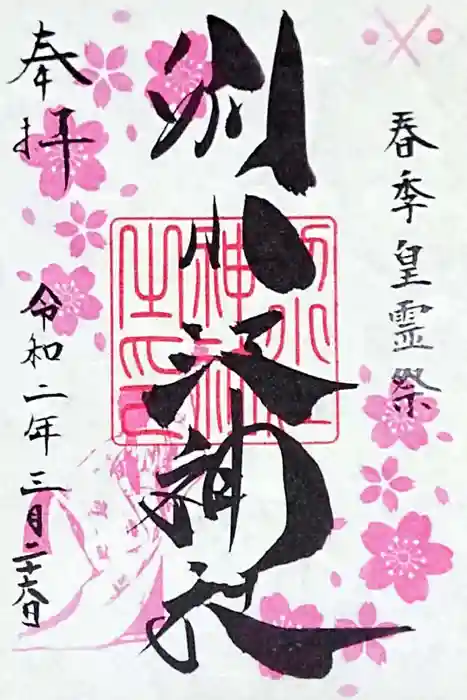 春季皇霊祭
別小江神社
奉拝
令和二年三月二十六日